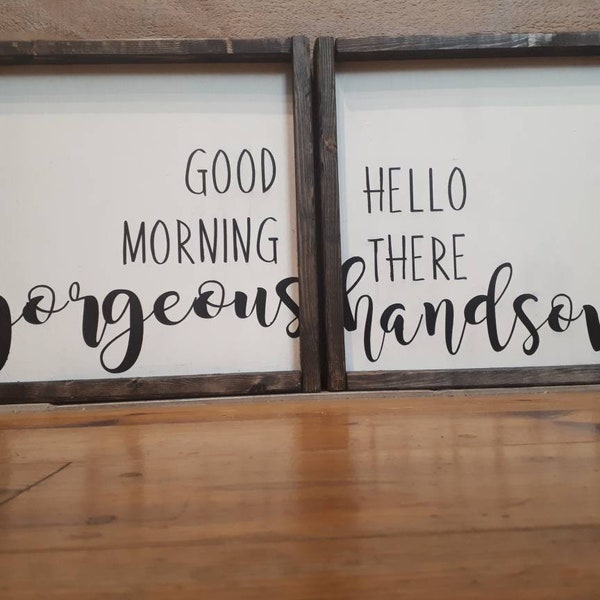 GOOD
MORNING
gorgeous
HELLO
THERE
handsom